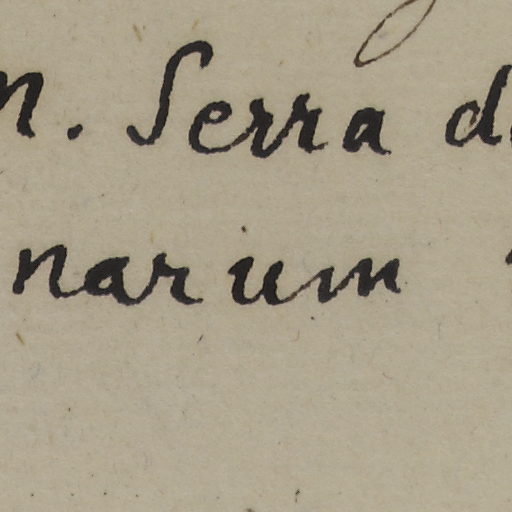 n. Serra d
narium